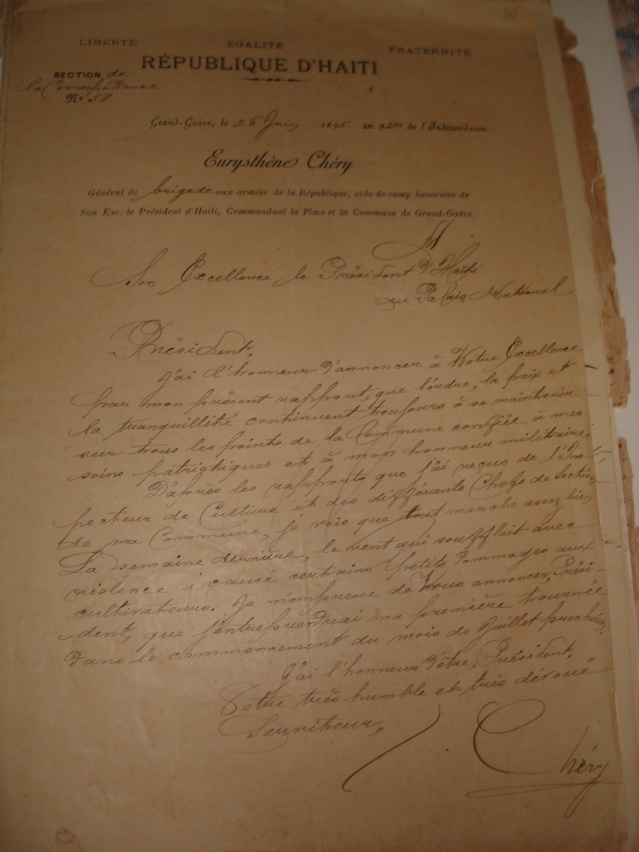 LIBERTÉ EGALITE FRATERNITE
RÉPUBLIQUE D'HAITI
SECTION de
la Correspondance
No 58
Grand-Goâve, le 26 Juin 1895 an 92me de l'Indépendance.
Eurysthène Chéry
Général de brigade aux armées de la République, aide-de-camp honoraire de
Son Exc. le Président d'Haiti, Commandant la Place et la Commune de Grand-Goâve.
A
Son Excellence le Président d'Haïti
au Palais National
Président,
J'ai l'honneur d'annoncer à Votre Excellence
par mon présent rapport, que l'ordre, la paix et
la tranquillité continuent toujours à se maintenir
sur tous les points de la Commune confiée à mes
soins patriotiques et à mon honneur militaire.
D'après les rapports que j'ai reçus de l'Ins-
pecteur de Culture et des différents Chefs de Section
de ma Commune, je vois que tout marche assez bien
La semaine dernière, le vent qui soufflait avec
violence à causé certains petits dommages aux
cultivateurs. Je m'empresse de Vous annoncer, Prési-
dent, que j'entreprendrai ma première tournée
dans le commencement du mois de Juillet prochain.
J'ai l'honneur d'être, Président,
Votre très humble et très dévoué
Serviteur,
Chéry